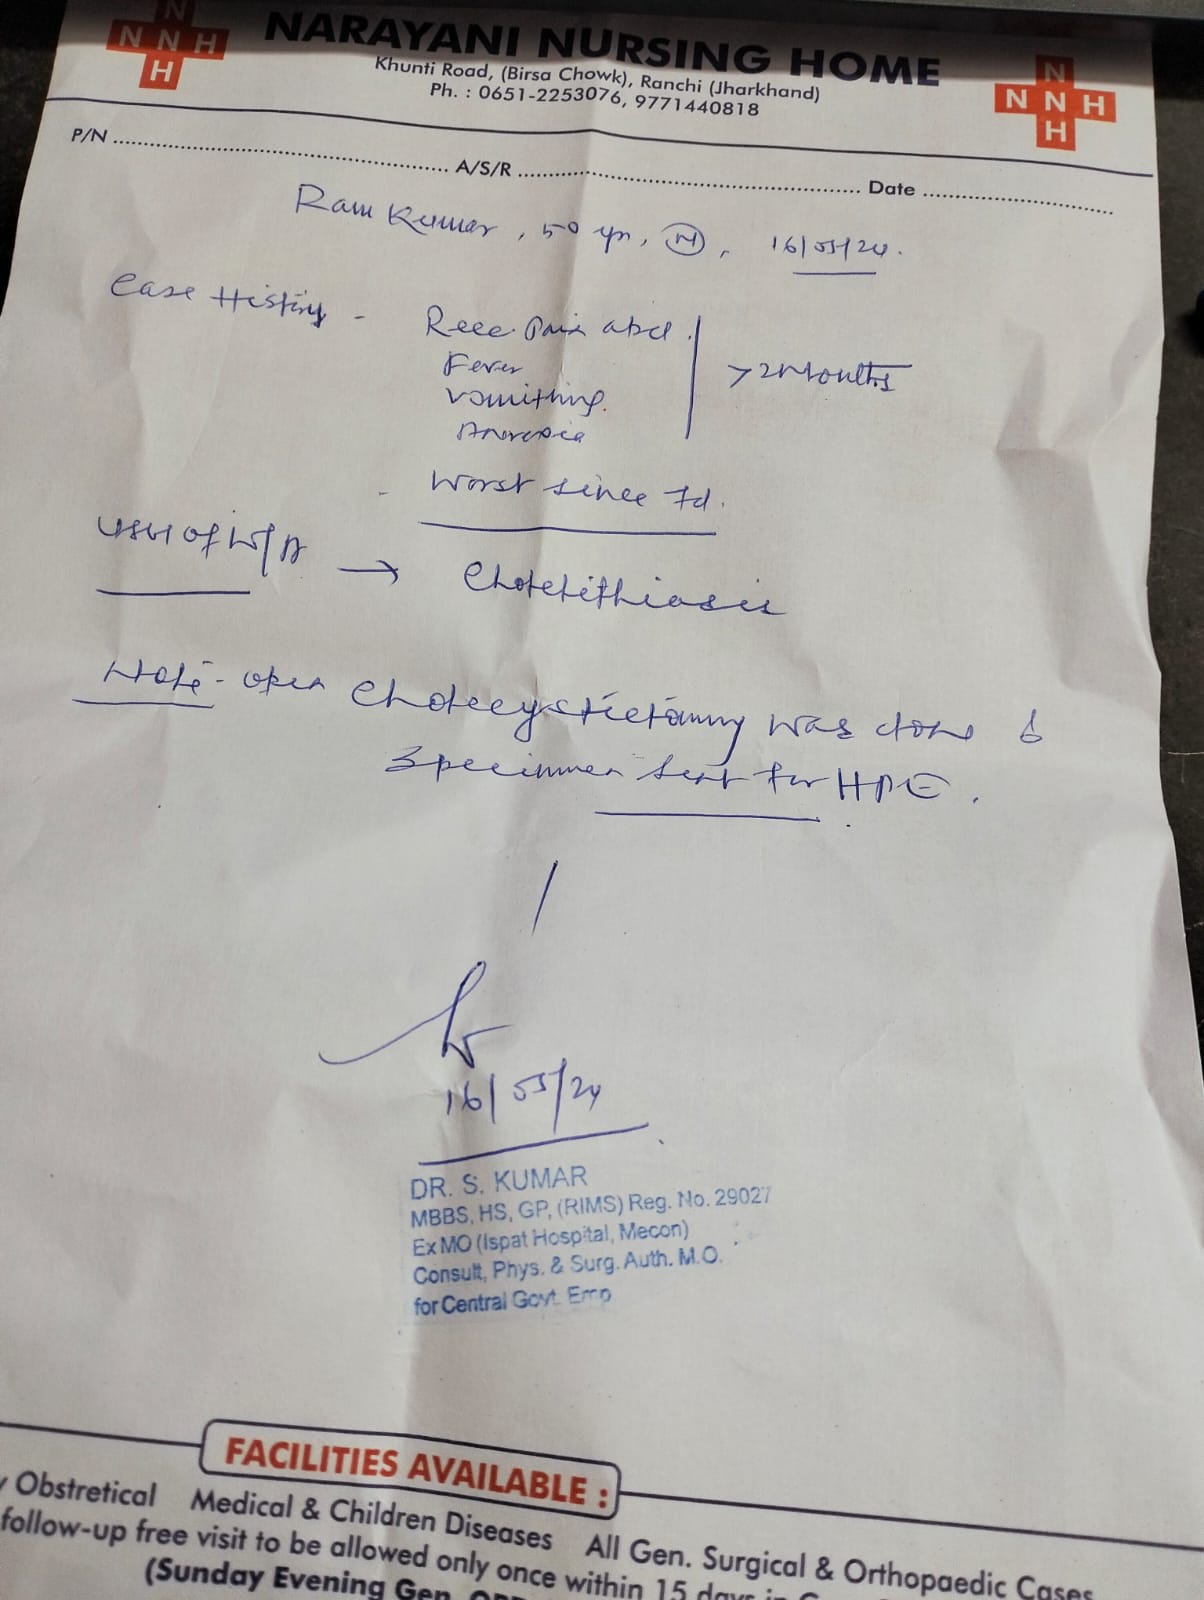 N
N N H
H
NARAYANI NURSING HOME
Khunti Road, (Birsa Chowk), Ranchi (Jharkhand)
Ph. : 0651-2253076, 9771440818
N
N N H
H
P/N ........ A/S/R ........ Date ........
Ram Kumar, 50 yr, (M), 16/05/24.
Case History - Rece. Pain abd.
Fever
vomithing.
Anorexia
> 2 Months
- Worst since 7d.
USG of W/A → Cholelithiasis
Note - open Cholecystictomy was done &
Specimen sent for HPE.
16/05/24
DR. S. KUMAR
MBBS, HS, GP, (RIMS) Reg. No. 29027
Ex MO (Ispat Hospital, Mecon)
Consult, Phys. & Surg. Auth. M.O.
for Central Govt. Emp
FACILITIES AVAILABLE :
y Obstretical Medical & Children Diseases All Gen. Surgical & Orthopaedic Cases
follow-up free visit to be allowed only once within 15 days in
(Sunday Evening Gen. OPD